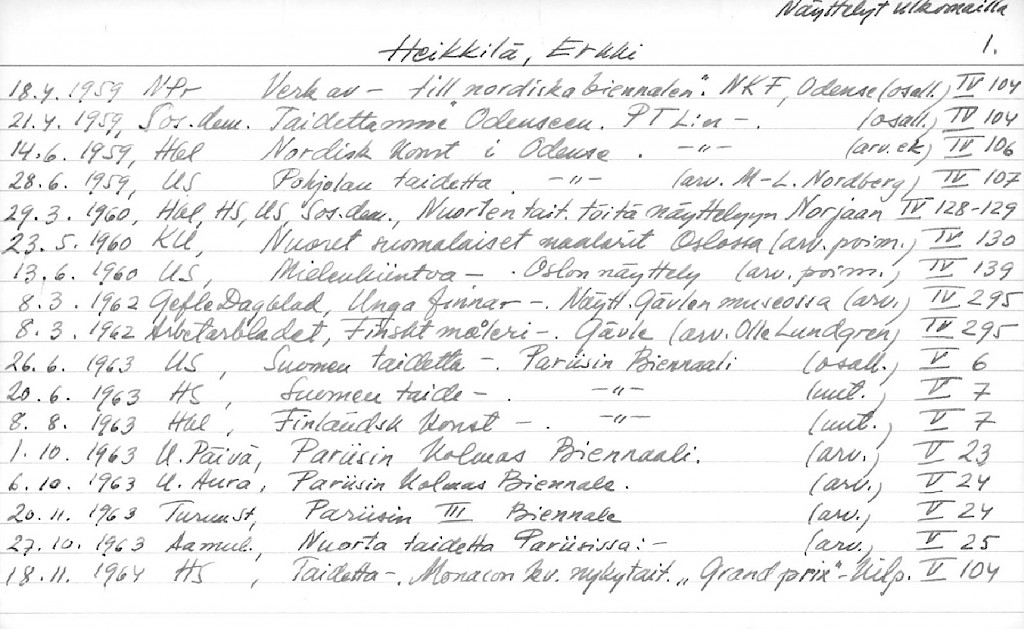 Näyttelyt ulkomailla
Heikkilä, Erkki 1.
18.4. 1959 NPr Verk av – till nordiska biennalen". NKF, Odense (osall.) IV 104
21.4. 1959, Sos.dem. Taidettamme Odenseen. PT Lin –. (osall.) IV 104
14.6. 1959, Hbl Nordisk konst i Odense. –"– (arv. ek) IV 106
28.6. 1959, US Pohjolan taidetta. –"– (arv. M-L. Nordberg) IV 107
29.3. 1960, Hbl, HS, US, Sos.dem., Nuorten tait. töitä näyttelyyn Norjaan IV 128-129
23.5. 1960 KU, Nuoret suomalaiset maalarit Oslossa (arv. poim.) IV 130
13.6. 1960 US, Mielenkiintoa –. Oslon näyttely (arv. poim.) IV 139
8.3. 1962 Gefle Dagblad, Unga finnar –. Näytt. Gävlen museossa (arv.) IV 295
8.3. 1962 Arbetarbladet, Finskt måleri –. Gävle (arv. Olle Lundgren) IV 295
26.6. 1963 US, Suomen taidetta –. Pariisin Biennaali (osall.) V 6
20.6. 1963 HS, Suomen taide –. –"– (uut.) V 7
8.8. 1963 Hbl, Finländsk konst –. –"– (uut.) V 7
1.10. 1963 U. Päivä, Pariisin kolmas Biennaali. (arv.) V 23
6.10. 1963 U. Aura, Pariisin kolmas Biennale. (arv.) V 24
20.11. 1963 Turunst, Pariisin III Biennale (arv.) V 24
27.10. 1963 Aamul., Nuorta taidetta Pariisissa:– (arv.) V 25
18.11. 1964 HS, Taidetta –. Monacon kv. nykytait. „Grand prix"-kilp. V 104